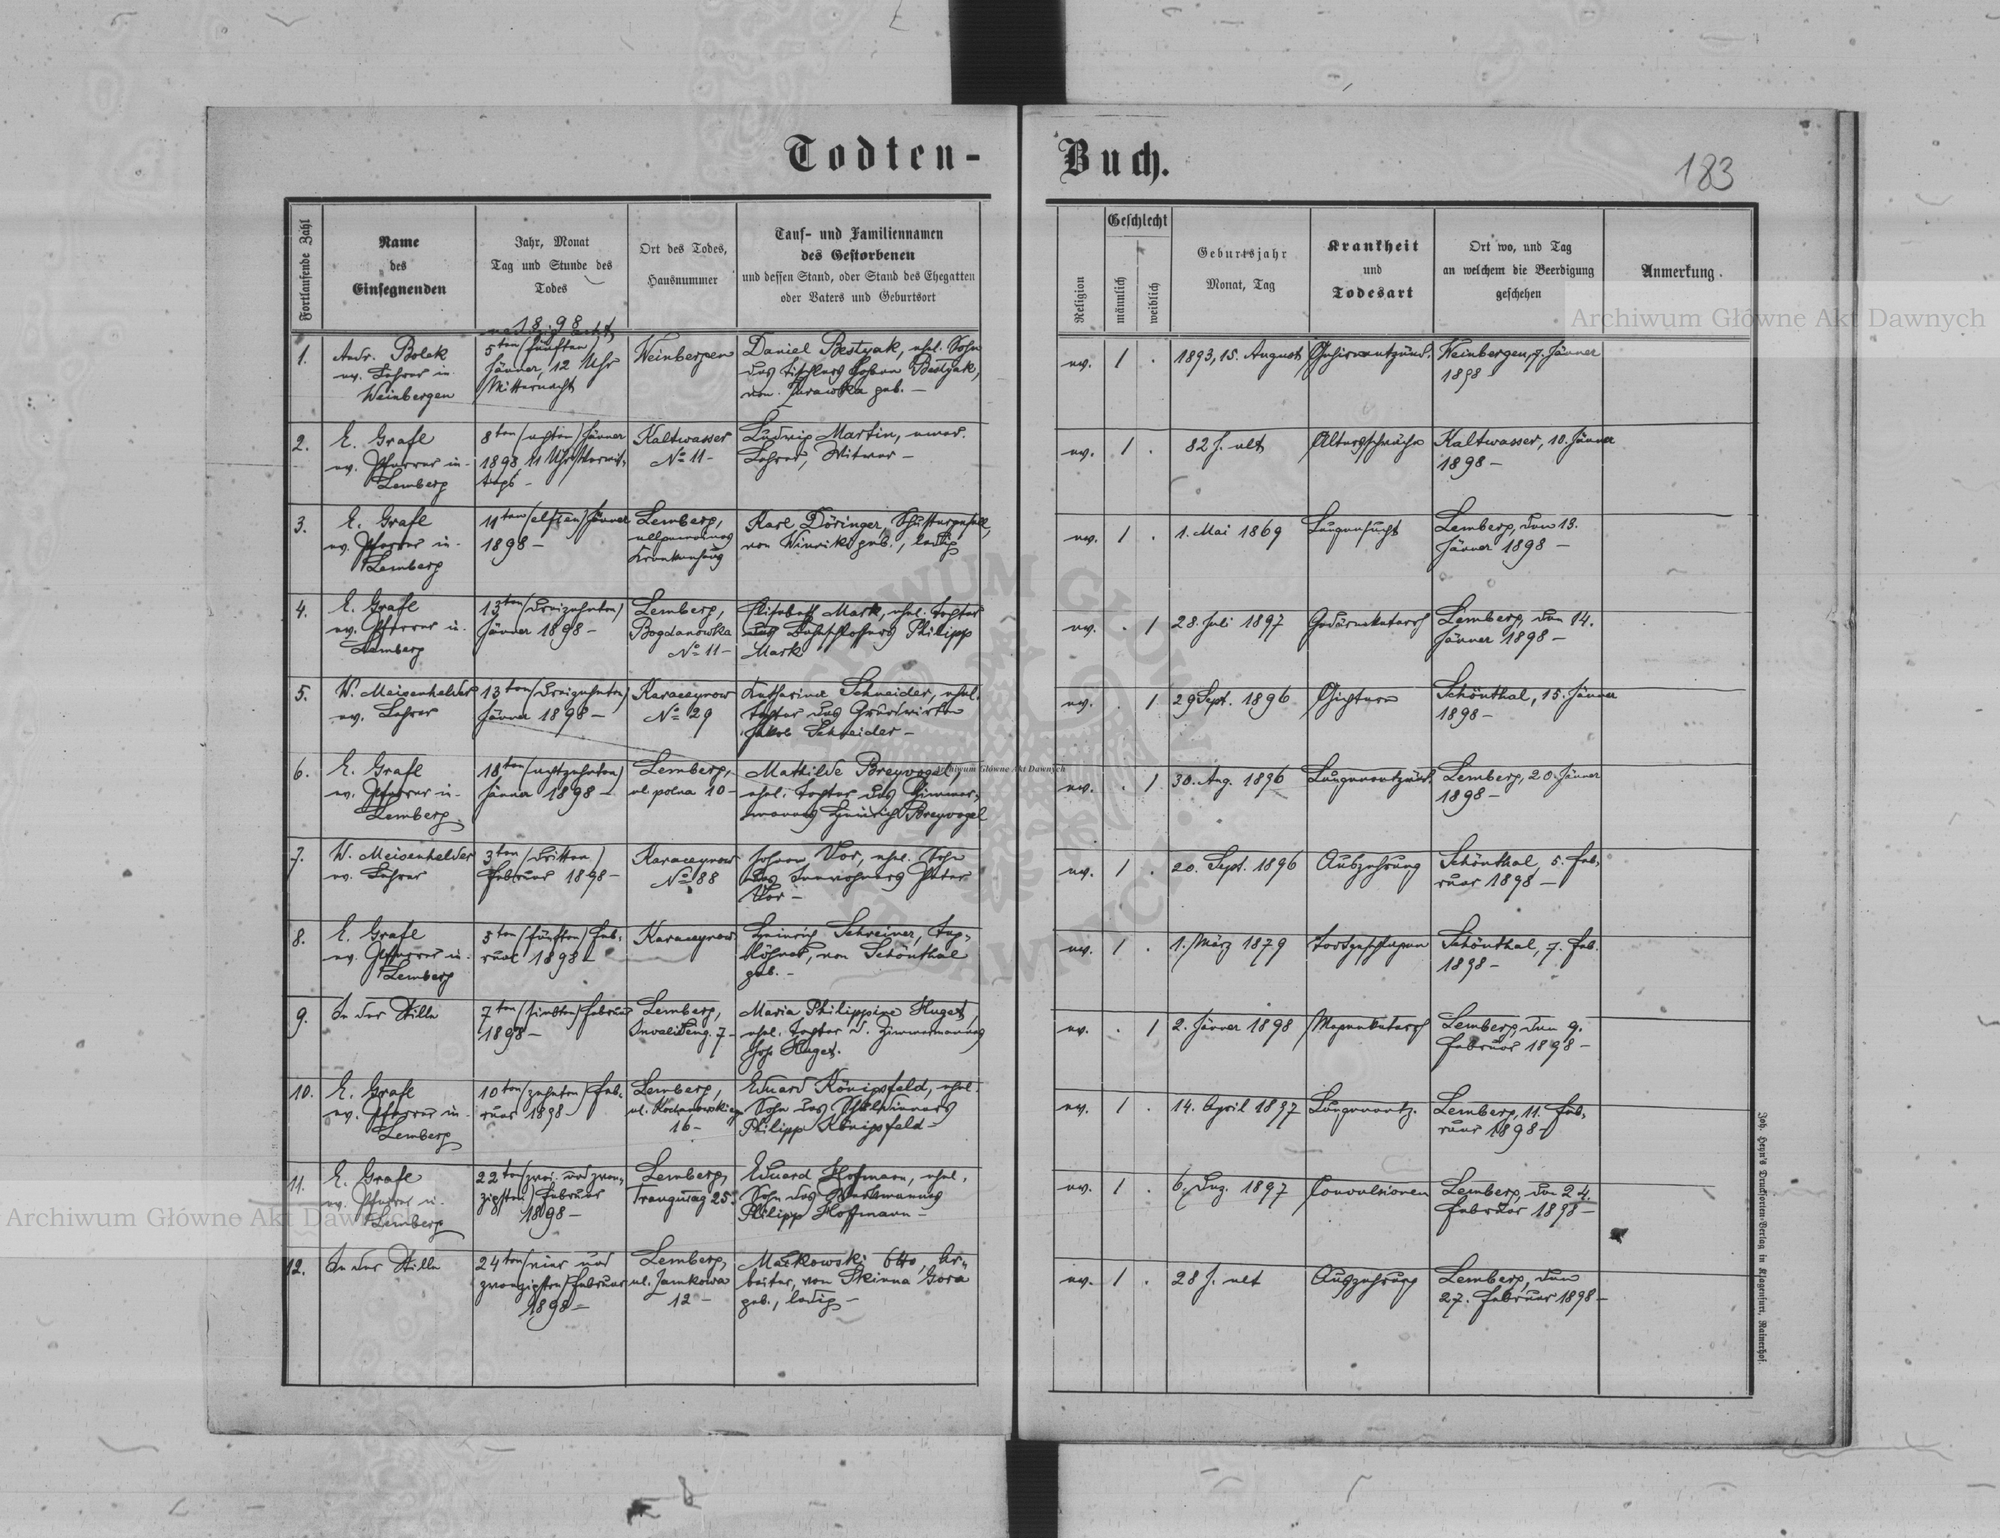 Todten-
Buch.
183
Fortlaufende Zahl
Name
des
Einsegnenden
Jahr, Monat
Tag und Stunde des
Todes
Ort des Todes,
Hausnummer
Tauf- und Familiennamen
des Gestorbenen
und dessen Stand, oder Stand des Ehegatten
oder Vaters und Geburtsort
Religion
Geschlecht
männlich
weiblich
Geburtsjahr
Monat, Tag
Krankheit
und
Todesart
Ort wo, und Tag
an welchem die Beerdigung
geschehen
Anmerkung.
1898
1.
Andr. Bolek
ev. Lehrer in
Weinbergen
5ten (fünften)
Jänner, 12 Uhr
Mitternacht
Weinbergen
Daniel Bestyak, ehel. Sohn
des Tischlers Johann Bestyak,
von Jurawka geb. –
ev.
1
.
1893, 15. August
Gehirnentzünd.
Weinbergen, 7. Jänner
1898
2.
E. Grafl
ev. Pfarrer in
Lemberg
8ten (achten) Jänner
1898, 11 Uhr Vormit-
tags –
Kaltwasser
No 11 –
Ludwig Martin, emer.
Lehrer, Witwer –
ev.
1
.
82 J. alt
Altersschwäche
Kaltwasser, 10. Jänner
1898 –
3.
E. Grafl
ev. Pfarrer in
Lemberg
11ten (elften) Jänner
1898 –
Lemberg,
allgemeines
Krankenhaus
Karl Döringer, Schustergesell,
von Winniki geb., ledig
ev.
1
.
1. Mai 1869
Lungensucht
Lemberg, den 13.
Jänner 1898 –
4.
E. Grafl
ev. Pfarrer in
Lemberg
13ten (dreizehnten)
Jänner 1898 –
Lemberg,
Bogdanówka
No 11 –
Elisabeth Mark, ehel. Tochter
des Bahnschlossers Philipp
Mark
ev.
.
1
28. Juli 1897
Gedärmkatarrh
Lemberg, den 14.
Jänner 1898 –
5.
W. Meisenhelder
ev. Lehrer
13ten (dreizehnten)
Jänner 1898 –
Karaczynow
No 29
Katharina Schneider, ehel.
Tochter des Grundwirthen
Jakob Schneider –
ev.
.
1
29 Sept. 1896
Gichtern
Schönthal, 15. Jänner
1898 –
6.
E. Grafl
ev. Pfarrer in
Lemberg
18ten (achtzehnten)
Jänner 1898 –
Lemberg,
ul polna 10 –
Mathilde Breyvogel,
ehel. Tochter des Zimmer-
mannes Heinrich Breyvogel
ev.
.
1
30. Aug. 1896
Lungenentzünd.
Lemberg, 20. Jänner
1898 –
7.
W. Meisenhelder
ev. Lehrer
3ten (dritten)
Februar 1898 –
Karaczynow
No 88
Johann Vor, ehel. Sohn
des Inwohners Peter
Vor –
ev.
1
.
20. Sept. 1896
Auszehrung
Schönthal, 5. Feb-
ruar 1898 –
8.
E. Grafl
ev. Pfarrer in
Lemberg
5ten (fünften) Feb-
ruar 1898 –
Karaczynow
Heinrich Schreiner, Tag-
löhner, von Schönthal
geb. –
ev.
1
.
1. März 1879
Todtgeschlagen
Schönthal, 7. Feb.
1898 –
9.
In der Stille
7ten (siebten) Februar
1898 –
Lemberg,
Invalideng. 7 –
Maria Philippine Huget,
ehel. Tochter d. Zimmermannes
Joh. Huget.
ev.
.
1
2. Jänner 1898
Magenkatarrh
Lemberg, den 9.
Februar 1898 –
10.
E. Grafl
ev. Pfarrer in
Lemberg
10ten (zehnten) Feb-
ruar 1898
Lemberg,
ul. Kochanowskiego
16 –
Eduard Königsfeld, ehel
Sohn des Schuldieners
Philipp Königsfeld –
ev.
1
.
14. April 1897
Lungenentz.
Lemberg, 11. Feb-
ruar 1898 –
11.
E. Grafl
ev. Pfarrer in
Lemberg
22ten (zwei und zwan-
zigsten) Februar
1898 –
Lemberg,
Traugutag 25.
Eduard Hofmann, ehel.
Sohn des Werkmannes
Philipp Hoffmann –
ev.
1
.
6. Dez. 1897
Convulsionen
Lemberg, den 24.
Februar 1898 –
12.
In der Stille
24ten (vier und
zwanzigsten) Februar
1898 –
Lemberg,
ul. Zamkowa
12 –
Markowski Otto, Ar-
beiter, von Skinna Gora
geb., ledig –
ev.
1
.
28 J. alt
Auszehrung
Lemberg, den
27. Februar 1898 –
Joh. Heyn's Drucksorten-Verlag in Klagenfurt, Rainerhof.
Archiwum Główne Akt Dawnych
Archiwum Główne Akt Dawnych
Archiwum Główne Akt Dawnych
ARCHIWUM GŁÓWNE AKT DAWNYCH